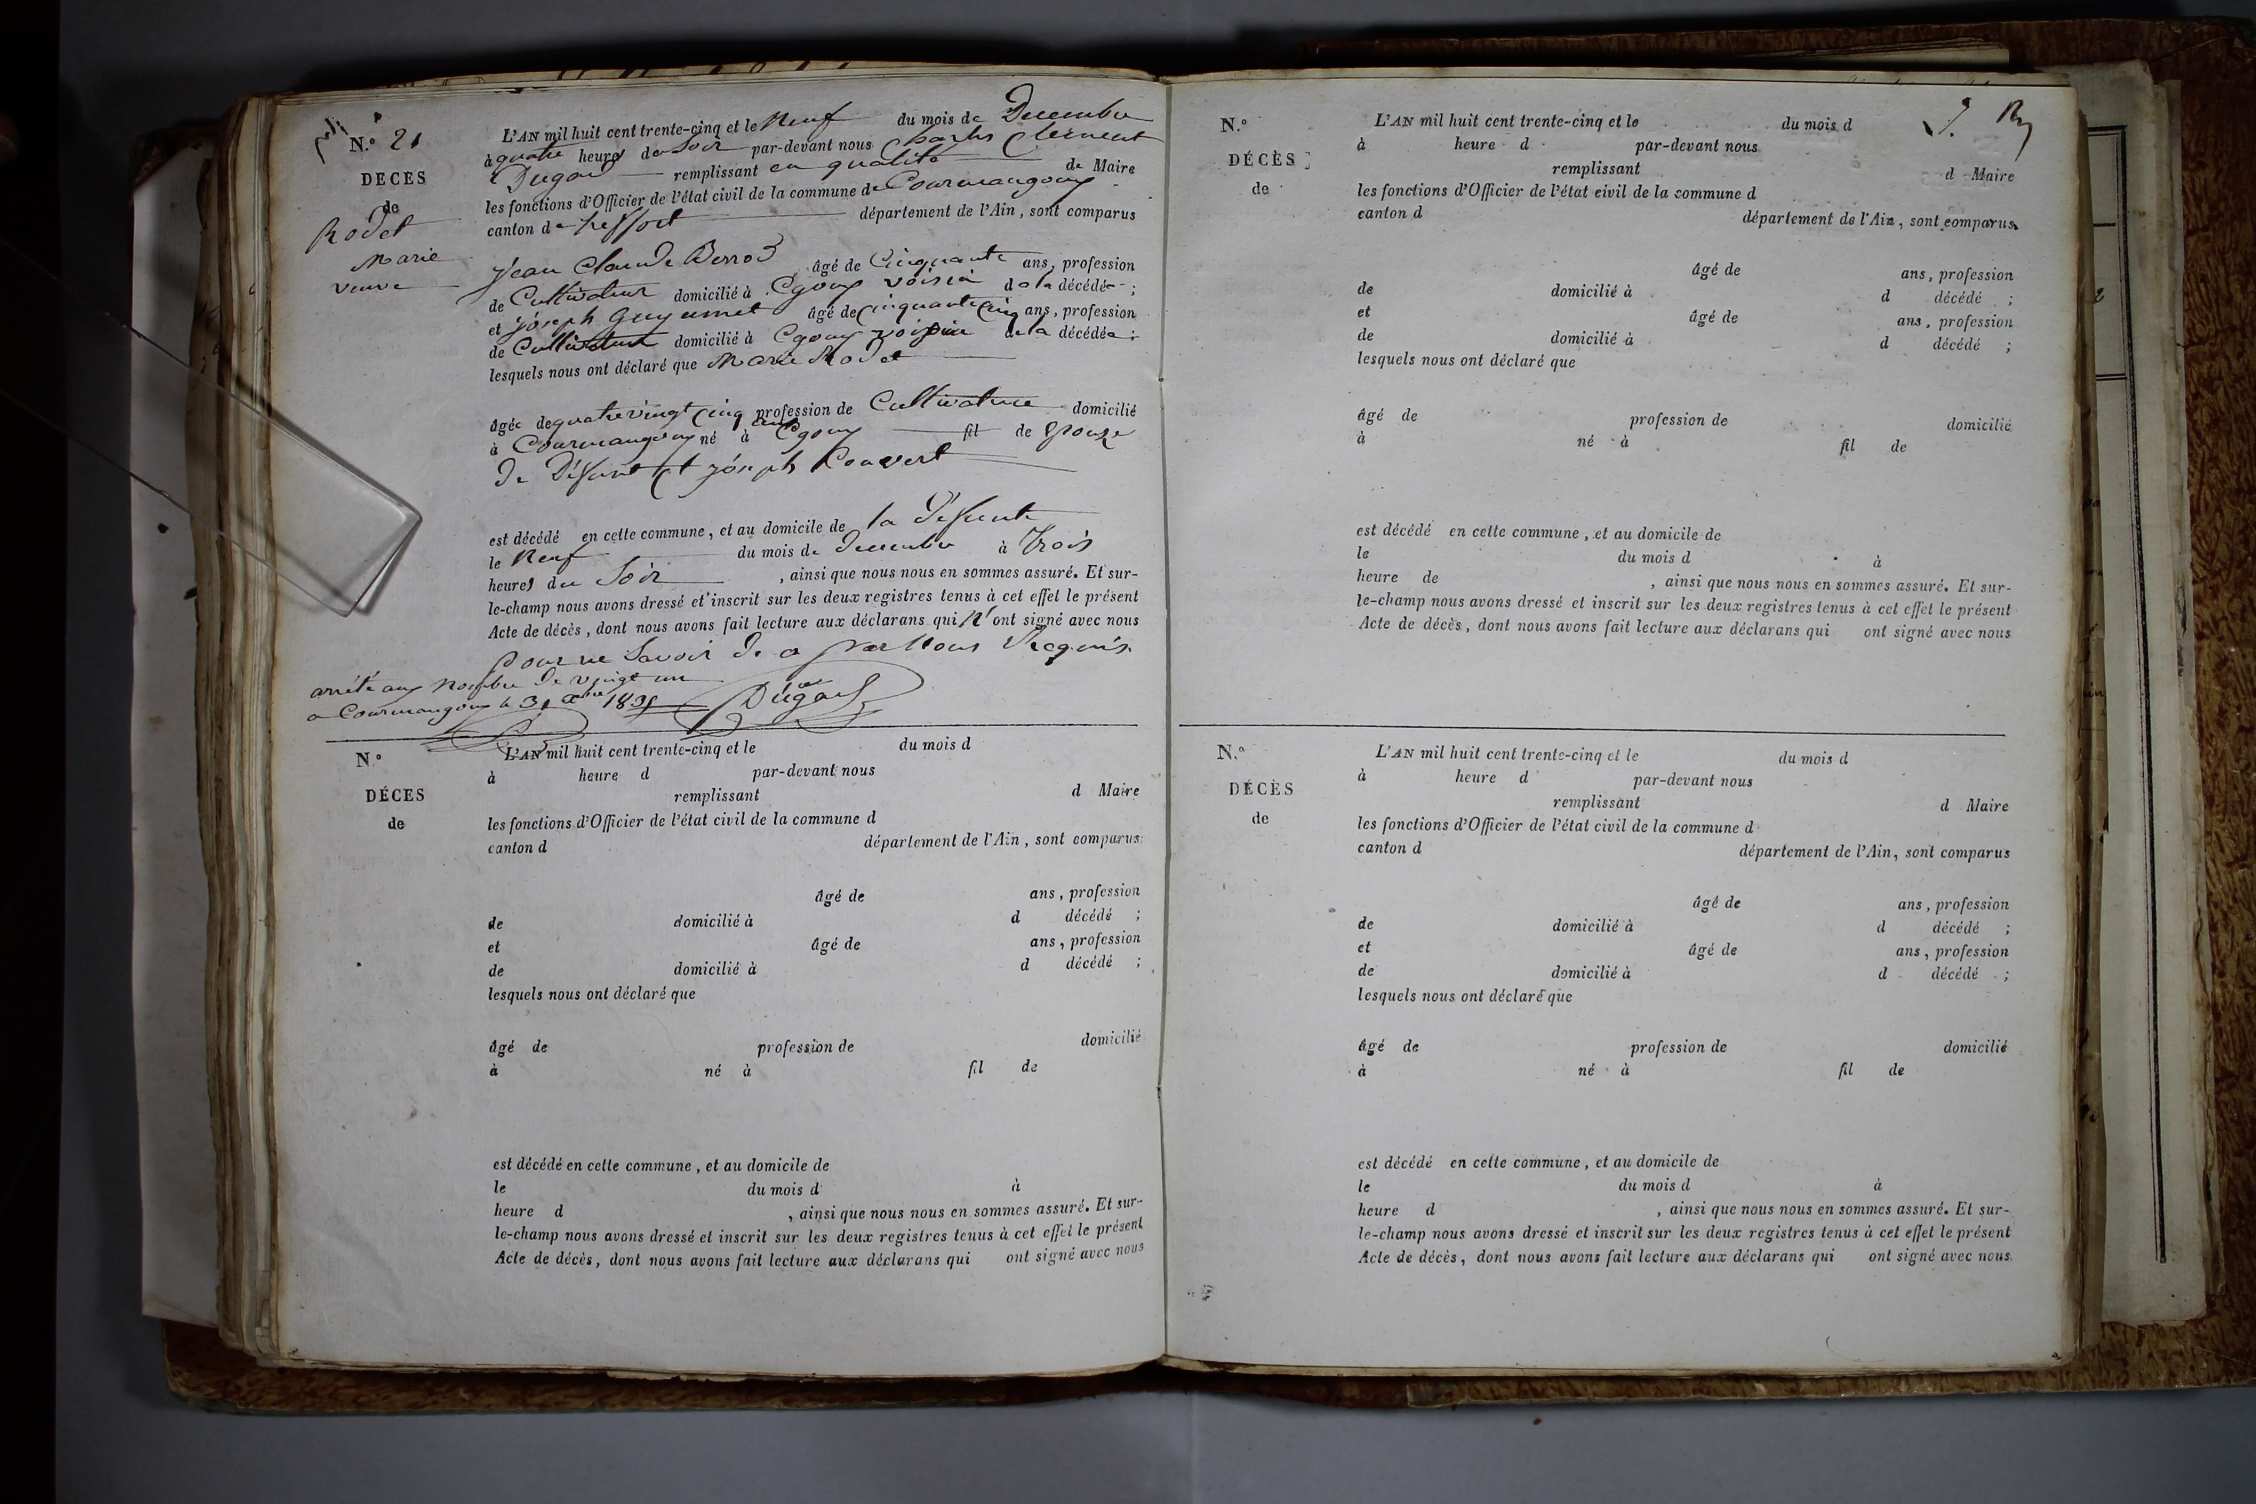 N.° 21
DECES
de
Rodet
Marie
veuve
L'AN mil huit cent trente-cinq et le Neuf du mois de Decembre
à quatre heures du Soir par-devant nous Charles Clément
Dugas remplissant en qualité de Maire
les fonctions d'Officier de l'état civil de la commune de Courmangoux
canton de treffort département de l'Ain, sont comparus
Jean Claude Berrod âgé de Cinquante ans, profession
de Cultivateur domicilié à Cgoux voisin de la décédée ;
et joseph Guyennet âgé de cinquante cinq ans, profession
de Cultivateur domicilié à Cgoux voisin de la décédée ;
lesquels nous ont déclaré que Marie Rodet
âgée de quatre vingt cinq profession de Cultivatrice domicilié
à Courmangoux né à Cgoux fil de Epouse
de Défunt joseph Convert
est décédé en cette commune, et au domicile de la défunte
le Neuf du mois de decembre à Trois
heures du Soir , ainsi que nous nous en sommes assuré. Et sur-
le-champ nous avons dressé et inscrit sur les deux registres tenus à cet effet le présent
Acte de décès, dont nous avons fait lecture aux déclarans qui n'ont signé avec nous
pour ne Savoir de a par Nous Requis
arrêté au Nombre de vingt un
a Courmangoux le 31 Xbre 1835 Dugas
N.°
DÉCES
de
L'AN mil huit cent trente-cinq et le du mois d
à heure d par-devant nous
remplissant d Maire
les fonctions d'Officier de l'état civil de la commune d
canton d département de l'Ain, sont comparus
âgé de ans, profession
de domicilié à d décédé ;
et âgé de ans, profession
de domicilié à d décédé ;
lesquels nous ont déclaré que
âgé de profession de domicilié
à né à fil de
est décédé en cette commune, et au domicile de
le du mois d à
heure d , ainsi que nous nous en sommes assuré. Et sur-
le-champ nous avons dressé et inscrit sur les deux registres tenus à cet effet le présent
Acte de décès, dont nous avons fait lecture aux déclarans qui ont signé avec nous
N.°
DÉCÈS
de
L'AN mil huit cent trente-cinq et le du mois d
à heure d par-devant nous
remplissant d Maire
les fonctions d'Officier de l'état civil de la commune d
canton d département de l'Ain, sont comparus
âgé de ans, profession
de domicilié à d décédé ;
et âgé de ans, profession
de domicilié à d décédé ;
lesquels nous ont déclaré que
âgé de profession de domicilié
à né à fil de
est décédé en cette commune, et au domicile de
le du mois d à
heure de , ainsi que nous nous en sommes assuré. Et sur-
le-champ nous avons dressé et inscrit sur les deux registres tenus à cet effet le présent
Acte de décès, dont nous avons fait lecture aux déclarans qui ont signé avec nous
N.°
DÉCÈS
de
L'AN mil huit cent trente-cinq et le du mois d
à heure d par-devant nous
remplissant d Maire
les fonctions d'Officier de l'état civil de la commune d
canton d département de l'Ain, sont comparus
âgé de ans, profession
de domicilié à d décédé ;
et âgé de ans, profession
de domicilié à d décédé ;
lesquels nous ont déclaré que
âgé de profession de domicilié
à né à fil de
est décédé en cette commune, et au domicile de
le du mois d à
heure d , ainsi que nous nous en sommes assuré. Et sur-
le-champ nous avons dressé et inscrit sur les deux registres tenus à cet effet le présent
Acte de décès, dont nous avons fait lecture aux déclarans qui ont signé avec nous.